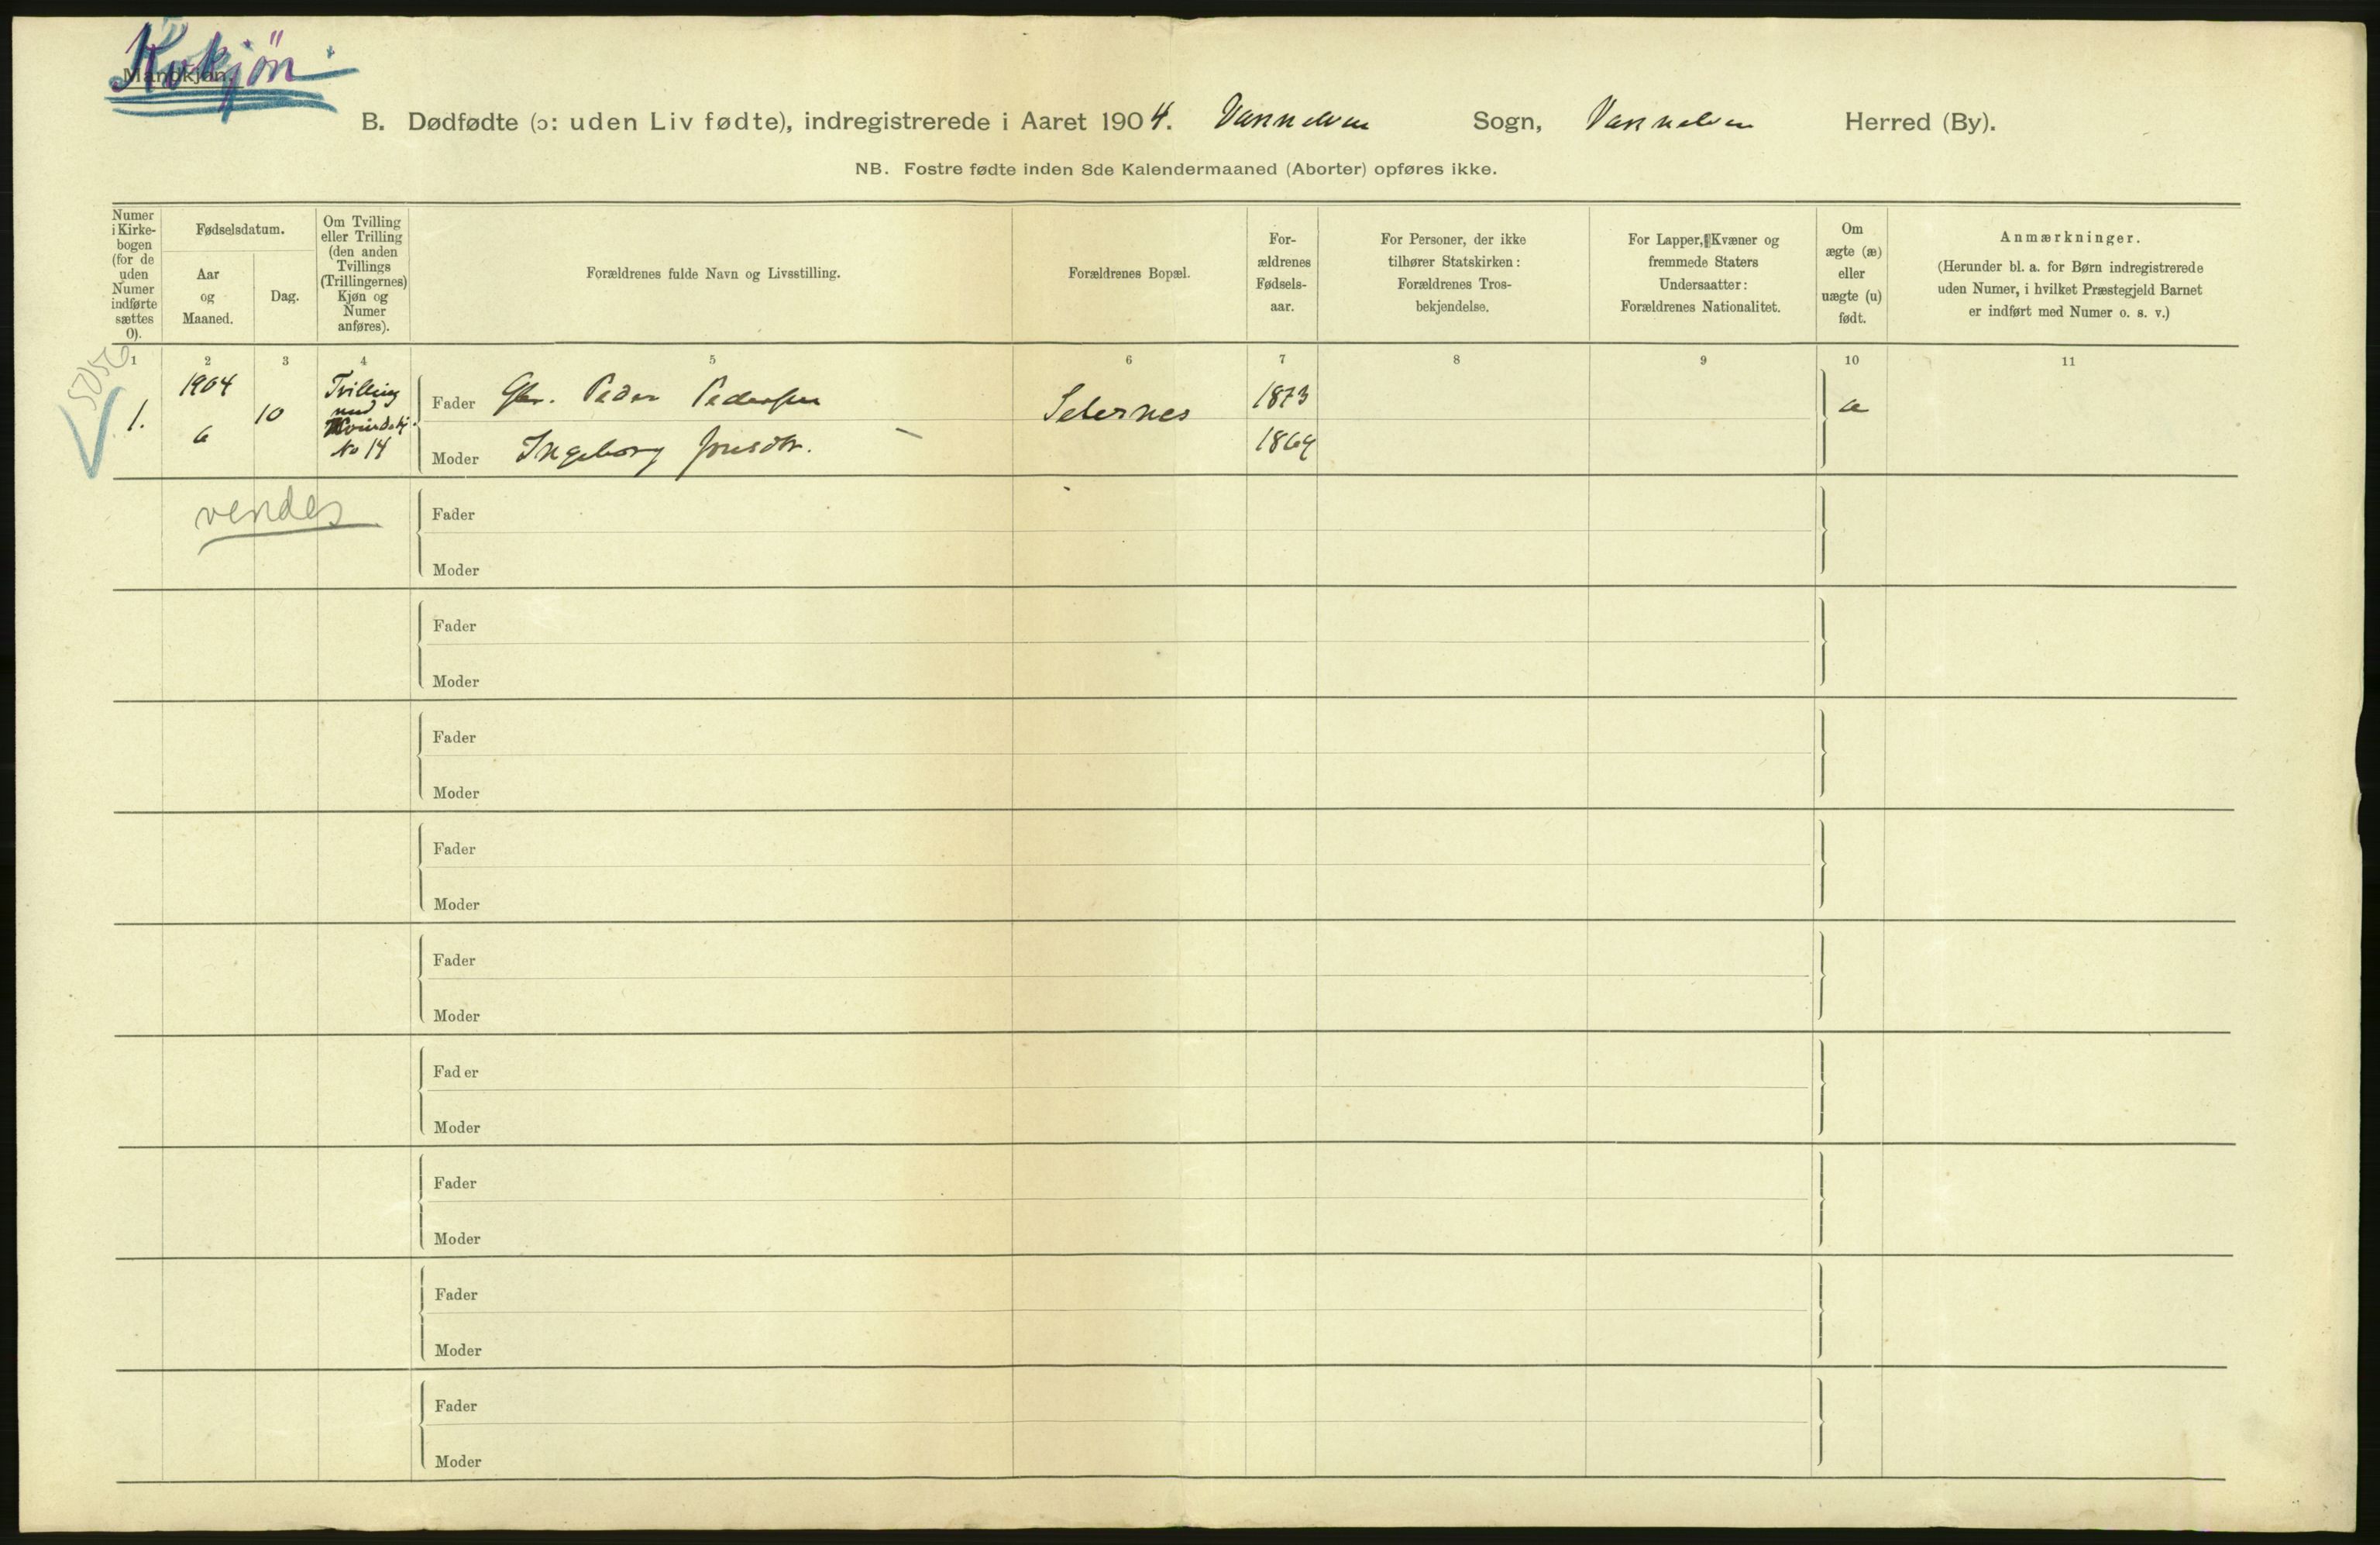 Kvkjøn
Mandkjøn.
B. Dødfødte (ɔ: uden Liv fødte), indregistrerede i Aaret 1904. Vannelven Sogn, Vannelven Herred (By).
NB. Fostre fødte inden 8de Kalendermaaned (Aborter) opføres ikke.
Numer i Kirke- bogen (for de uden Numer indførte sættes 0).
Fødselsdatum.
Aar og Maaned.
Dag.
Om Tvilling eller Trilling (den anden Tvillings (Trillingernes) Kjøn og Numer anføres).
Forældrenes fulde Navn og Livsstilling.
Forældrenes Bopæl.
For- ældrenes Fødsels- aar.
For Personer, der ikke tilhører Statskirken: Forældrenes Tros- bekjendelse.
For Lapper, Kvæner og fremmede Staters Undersaatter: Forældrenes Nationalitet.
Om ægte (æ) eller uægte (u) født.
Anmærkninger.
(Herunder bl. a. for Børn indregistrerede uden Numer, i hvilket Præstegjeld Barnet er indført med Numer o. s. v.)
1 2 3 4 5 6 7 8 9 10 11
1. 1904 6 10 Tvilling med Kvindekj. No 14
Fader Gbr. Peder Pedersen Seternes 1873 æ
Moder Ingeborg Jonsdtr. 1869
vendes
Fader
Moder
Fader
Moder
Fader
Moder
Fader
Moder
Fader
Moder
Fader
Moder
Fader
Moder
Fader
Moder
Fader
Moder